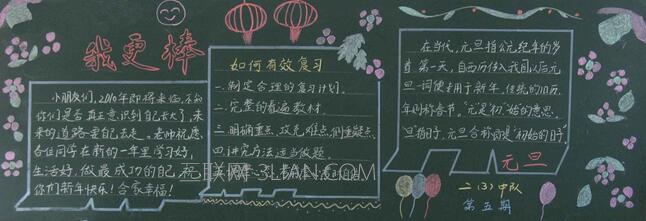 我更棒
小朋友们,2010年即将来临,不知
你们是否真正意识到自己长大了,未
来的道路要自己去走。老师祝愿
各位同学在新的一年里学习好,
生活好,做最成功的自己,祝
你们新年快乐!合家幸福!
如何有效复习
一.制定合理的复习计划。
二.完整的看遍教材。
三.明确重点、攻克难点、侧重疑点。
四.讲究方法适当做题。
在当代,元旦指公元纪年的岁
首第一天,自西历传入我国以后,元
旦一词便专用于新年,传统的旧历
年则称春节。“元”是“初”始的意思,
“旦”指日子,元旦合称即是“初始的日子”。
元旦
二(3)中队
第五期